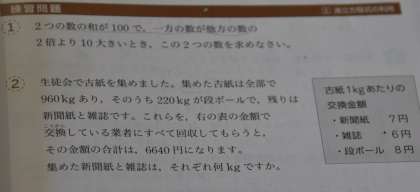 練習問題
連立方程式の利用
1 2つの数の和が100で、一方の数が他方の数の
2倍より10大きいとき、この2つの数を求めなさい。
2 生徒会で古紙を集めました。集めた古紙は全部で
960kgあり、そのうち220kgが段ボールで、残りは
新聞紙と雑誌です。これらを、右の表の金額で
交換している業者にすべて回収してもらうと、
その金額の合計は、6640円になります。
集めた新聞紙と雑誌は、それぞれ何kgですか。
古紙1kgあたりの
交換金額
・新聞紙 7円
・雑誌 6円
・段ボール 8円